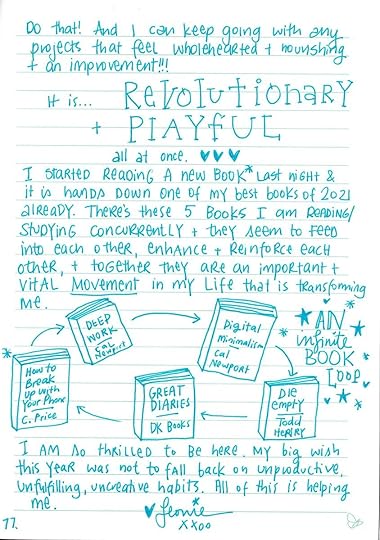 Do that! And I can keep going with any
projects that feel wholehearted + nourishing
+ an improvement!!!
It is... Revolutionary
+ PLAYFUL
all at once.
I started reading a new book* last night &
it is hands down one of my best books of 2021
already. There's these 5 books I am reading/
studying concurrently + they seem to feed
into each other, enhance + reinforce each
other, + together they are an important +
vital movement in my life that is transforming
me.
Deep
Work
Cal
Newport
Digital
Minimalism
Cal
Newport
* AN
infinite
BOOK
Loop
How to
Break
up with
Your Phone
C. Price
GREAT
DIARIES
DK Books
Die
empty
Todd
Henry
I am so thrilled to be here. My big wish
this year was not to fall back on unproductive,
unfulfilling, uncreative habits. All of this is helping
me.
Leonie
xxoo
77.